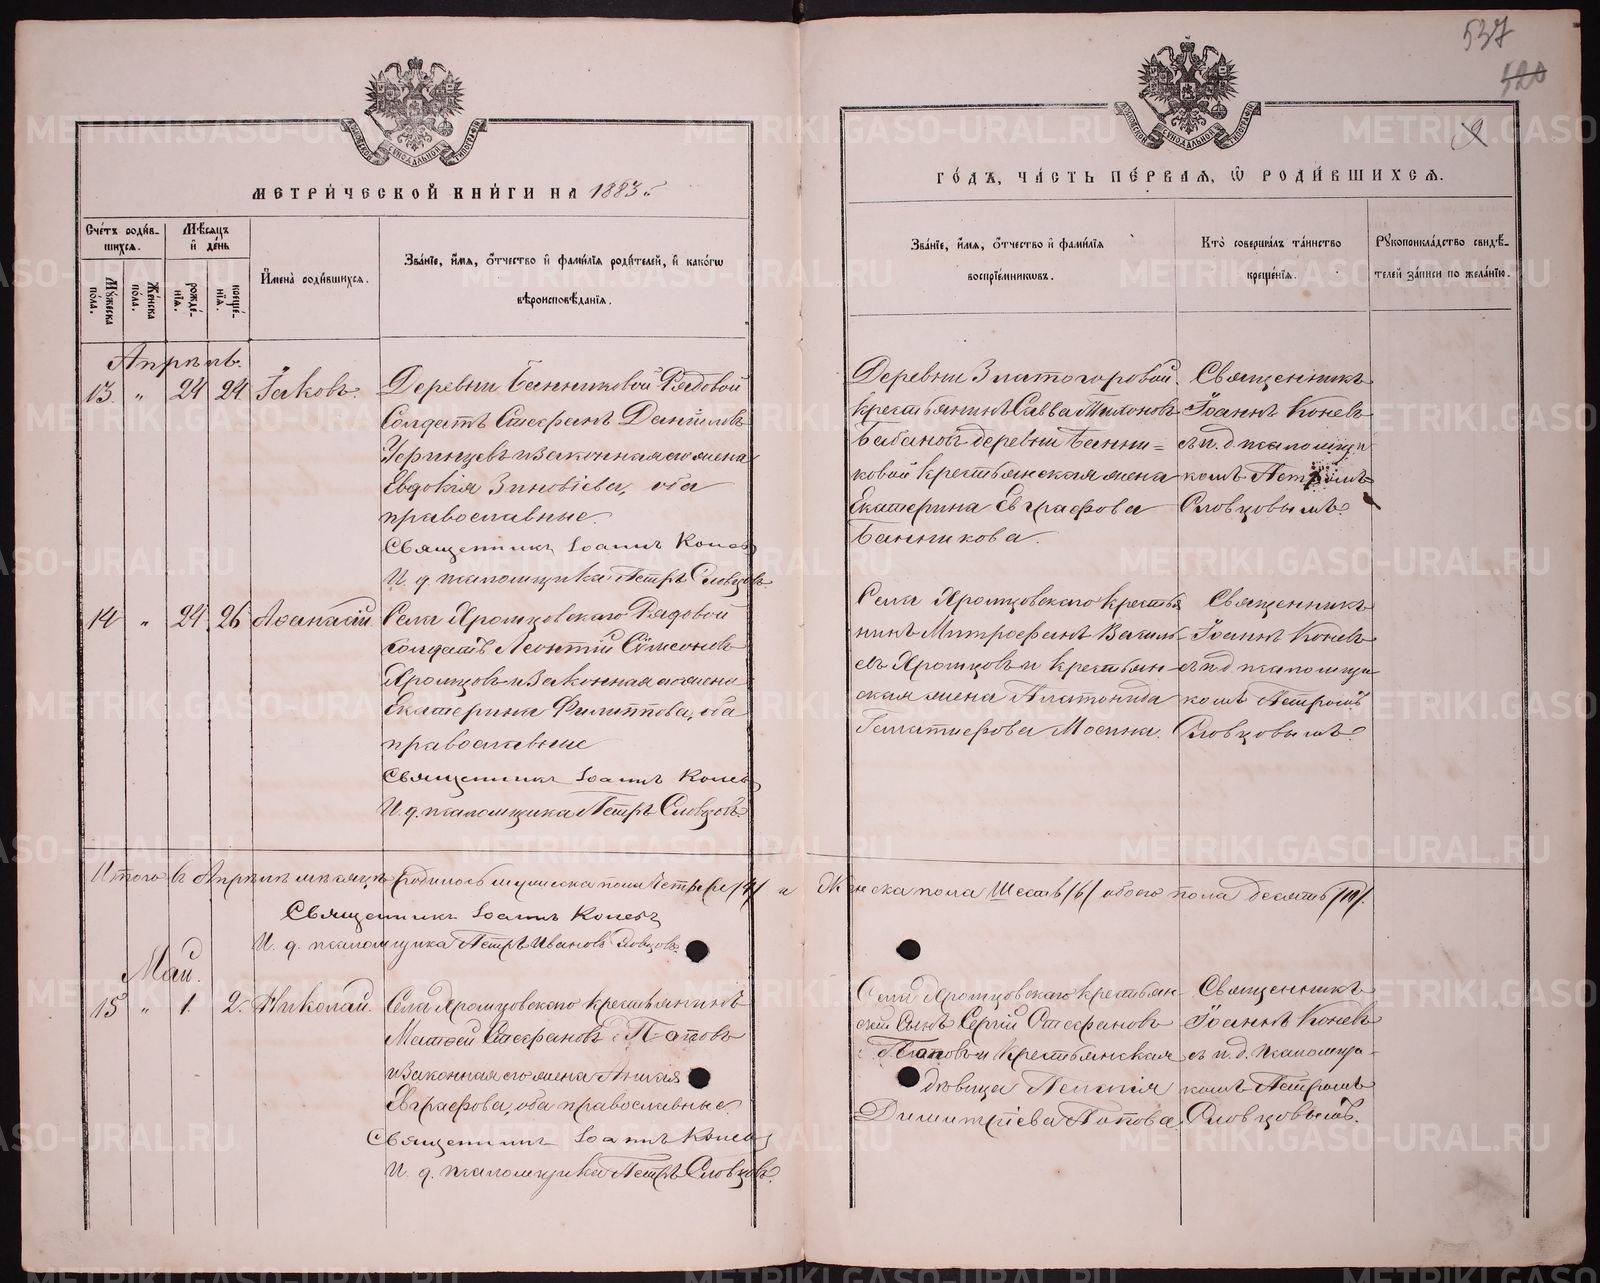 537
520
9
МЕТРИ́ЧЕСКОЙ КНИ́ГИ НА 1883 г.
ГО́ДЪ, ЧА́СТЬ ПЕ́РВАЯ, Ѽ РОДИ́ВШИХСЯ.
Сче́тъ роди́в-
шихся.
Мѣ́сяцъ
и де́нь
Му́жеска
пола.
Же́нска
пола.
рожде́-
нїя.
креще́-
нїя.
И҆мена̀ роди́вшихся.
Зва́нїе, и҆́мя, ѻ҆́тчество и҆ фами́лїя роди́телей, и҆ како́гѡ
вѣроисповѣ́данїя.
Зва́нїе, и҆́мя, ѻ҆́тчество и҆ фами́лїя
воспрїе́мниковъ.
Кто̀ соверша́лъ та́инство
креще́нїя.
Рꙋкоприкла́дство свидѣ́-
телей за́писи по жела́нїю.
Апрѣль.
13. " 24 24 Іаковъ.
Деревни Банниковой Рядовой
Солдатъ Стефанъ Даніиловъ
и законная его жена
Евдокія Зиновіева, оба
православные.
Священникъ Іоаннъ Коневъ
И. д. псаломщика Петръ Словцовъ.
Деревни Златогоровой
крестьянинъ Савва Тихоновъ
Бабановъ деревни Банни=
ковой крестьянская жена
Екатерина Евграфова
Банникова.
Священникъ
Іоаннъ Коневъ
съ и. д. псаломщи
комъ Петромъ
Словцовымъ.
14 " 24 26 Аѳанасій
Села Хромцовскаго Рядовой
солдатъ Леонтій Симеоновъ
Хромцовъ и законная его жена
Екатерина Филиппова, оба
православные
Священникъ Іоаннъ Коневъ
И. д. псаломщика Петръ Словцовъ.
Села Хромцовскаго крестья
нинъ Митрофанъ Василь
евъ Хромцовъ и крестьян-
ская жена Платонида
Галактіонова Мосина.
Священникъ
Іоаннъ Коневъ
съ и. д. псаломщи
комъ Петромъ
Словцовымъ.
Итого въ Апрѣлѣ мѣсяцѣ родилось мужеска пола четыре /4/ и женска пола шесть /6/ обоего пола десять /10/.
Священникъ Іоаннъ Коневъ
И. д. псаломщика Петръ Ивановъ Словцовъ.
Май.
15 " 1. 2. Николай.
Села Хромцовскаго крестьянинъ
Матѳей Стефановъ Поповъ
и законная его жена
Евграфова, оба православные.
Священникъ Іоаннъ Коневъ
И. д. псаломщика Петръ Словцовъ.
Села Хромцовскаго крестьян-
скій сынъ Сергій Стефановъ
Поповъ и крестьянская
дѣвица
Димитріева Попова
Священникъ
Іоаннъ Коневъ
съ и. д. псаломщи-
комъ Петромъ
Словцовымъ.
METRIKI.GASO-URAL.RU